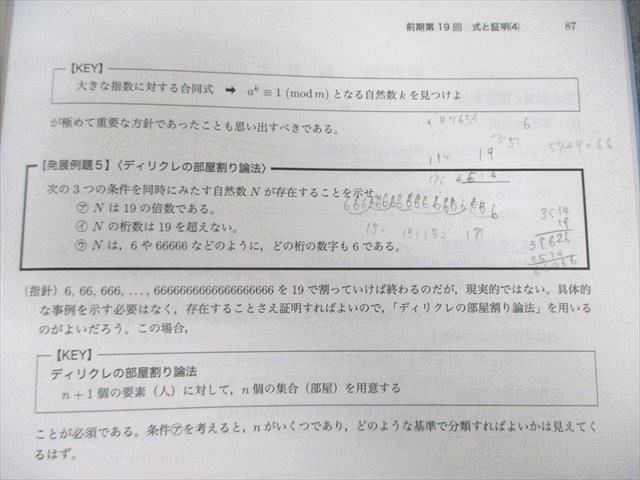 前期第19回 式と証明(4) 87
【KEY】
大きな指数に対する合同式 ➡ a^k ≡ 1 (mod m) となる自然数 k を見つけよ
が極めて重要な方針であったことも思い出すべきである。
【発展例題5】〈ディリクレの部屋割り論法〉
次の3つの条件を同時にみたす自然数 N が存在することを示せ。
㋐ N は 19 の倍数である。
㋑ N の桁数は 19 を超えない。
㋒ N は，6 や 66666 などのように，どの桁の数字も 6 である。
6
57+9=66
19
3514
19
(指針) 6, 66, 666, …, 6666666666666666666 を 19 で割っていけば終わるのだが，現実的ではない。具体的
な事例を示す必要はなく，存在することさえ証明すればよいので，「ディリクレの部屋割り論法」を用いる
のがよいだろう。この場合，
【KEY】
ディリクレの部屋割り論法
n+1 個の要素（人）に対して，n 個の集合（部屋）を用意する
ことが必須である。条件㋐を考えると，n がいくつであり，どのような基準で分類すればよいかは見えてく
るはず。